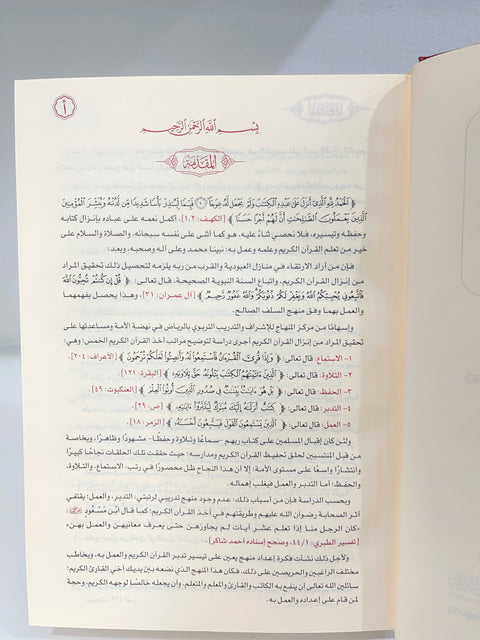 أ
بِسْمِ اللَّهِ الرَّحْمَنِ الرَّحِيمِ
المقدمة
﴿ الْحَمْدُ لِلَّهِ الَّذِي أَنزَلَ عَلَى عَبْدِهِ الْكِتَابَ وَلَمْ يَجْعَل لَّهُ عِوَجًا ﴿١﴾ قَيِّمًا لِّيُنذِرَ بَأْسًا شَدِيدًا مِّن لَّدُنْهُ وَيُبَشِّرَ الْمُؤْمِنِينَ
الَّذِينَ يَعْمَلُونَ الصَّالِحَاتِ أَنَّ لَهُمْ أَجْرًا حَسَنًا ﴾ [الكهف: ١،٢]، أكمل نعمه على عباده بإنزال كتابه
وحفظه وتيسيره، فلا نحصي ثناءً عليه، هو كما أثنى على نفسه سبحانه، والصلاة والسلام على
خير من تعلم القرآن الكريم وعلمه وعمل به: نبينا محمد وعلى آله وصحبه، وبعد:
فإن من أراد الارتقاء في منازل العبودية والقرب من ربه يلزمه لتحصيل ذلك تحقيق المراد
من إنزال القرآن الكريم، واتباع السنة النبوية الصحيحة، قال تعالى: ﴿ قُلْ إِن كُنتُمْ تُحِبُّونَ اللَّهَ
فَاتَّبِعُونِي يُحْبِبْكُمُ اللَّهُ وَيَغْفِرْ لَكُمْ ذُنُوبَكُمْ وَاللَّهُ غَفُورٌ رَّحِيمٌ ﴾ [آل عمران: ٣١]، وهذا يحصل بفهمهما
والعمل بهما وفق منهج السلف الصالح.
وإسهامًا من مركز المنهاج للإشراف والتدريب التربوي بالرياض في نهضة الأمة ومساعدتها على
تحقيق المراد من إنزال القرآن الكريم أجرى دراسة لتوضيح مراتب أخذ القرآن الكريم الخمس؛ وهي:
١- الاستماع: قال تعالى: ﴿ وَإِذَا قُرِئَ الْقُرْآنُ فَاسْتَمِعُوا لَهُ وَأَنصِتُوا لَعَلَّكُمْ تُرْحَمُونَ ﴾ [الأعراف: ٢٠٤]
٢- التلاوة: قال تعالى: ﴿ الَّذِينَ آتَيْنَاهُمُ الْكِتَابَ يَتْلُونَهُ حَقَّ تِلَاوَتِهِ ﴾ [البقرة: ١٢١]
٣- الحفظ: قال تعالى: ﴿ بَلْ هُوَ آيَاتٌ بَيِّنَاتٌ فِي صُدُورِ الَّذِينَ أُوتُوا الْعِلْمَ ﴾ [العنكبوت: ٤٩]
٤- التدبر: قال تعالى: ﴿ كِتَابٌ أَنزَلْنَاهُ إِلَيْكَ مُبَارَكٌ لِّيَدَّبَّرُوا آيَاتِهِ ﴾ [ص: ٢٩]
٥- العمل: قال تعالى: ﴿ الَّذِينَ يَسْتَمِعُونَ الْقَوْلَ فَيَتَّبِعُونَ أَحْسَنَهُ ﴾ [الزمر: ١٨]
ولئن كان إقبال المسلمين على كتاب ربهم -سماعًا وتلاوة وحفظًا- مشهودًا وظاهرًا، وبخاصة
من قبل المنتسبين لحلق تحفيظ القرآن الكريم ومدارسه؛ حيث حققت تلك الحلقات نجاحًا كبيرًا
وانتشارًا واسعًا على مستوى الأمة؛ إلا أن هذا النجاح ظل محصورًا في رتب: الاستماع، والتلاوة،
والحفظ؛ أما التدبر والعمل فيغلب إهماله.
وبحسب الدراسة فإن من أسباب ذلك: عدم وجود منهج تدريبي لرتبتي: التدبر، والعمل؛ يقتفي
أثر الصحابة رضوان الله عليهم وطريقتهم في أخذ القرآن الكريم؛ كما قال ابن مَسْعُود رضي الله عنه:
«كان الرجل منا إذا تعلم عشر آيات لم يجاوزهن حتى يعرف معانيهن والعمل بهن»
[تفسير الطبري: ٤٤/١، وصحح إسناده أحمد شاكر].
ولأجل ذلك نشأت فكرة إعداد منهج يعين على تيسير تدبر القرآن الكريم والعمل به، ويخاطب
مختلف الراغبين والحريصين على ذلك، فكان هذا المنهج الذي نضعه بين يديك أخي القارئ الكريم؛
سائلين الله تعالى أن ينفع به الكاتب والقارئ والمعلم والمتعلم، وأن يجعله خالصًا لوجهه الكريم، وحجة
لمن قام على إعداده والعمل به.